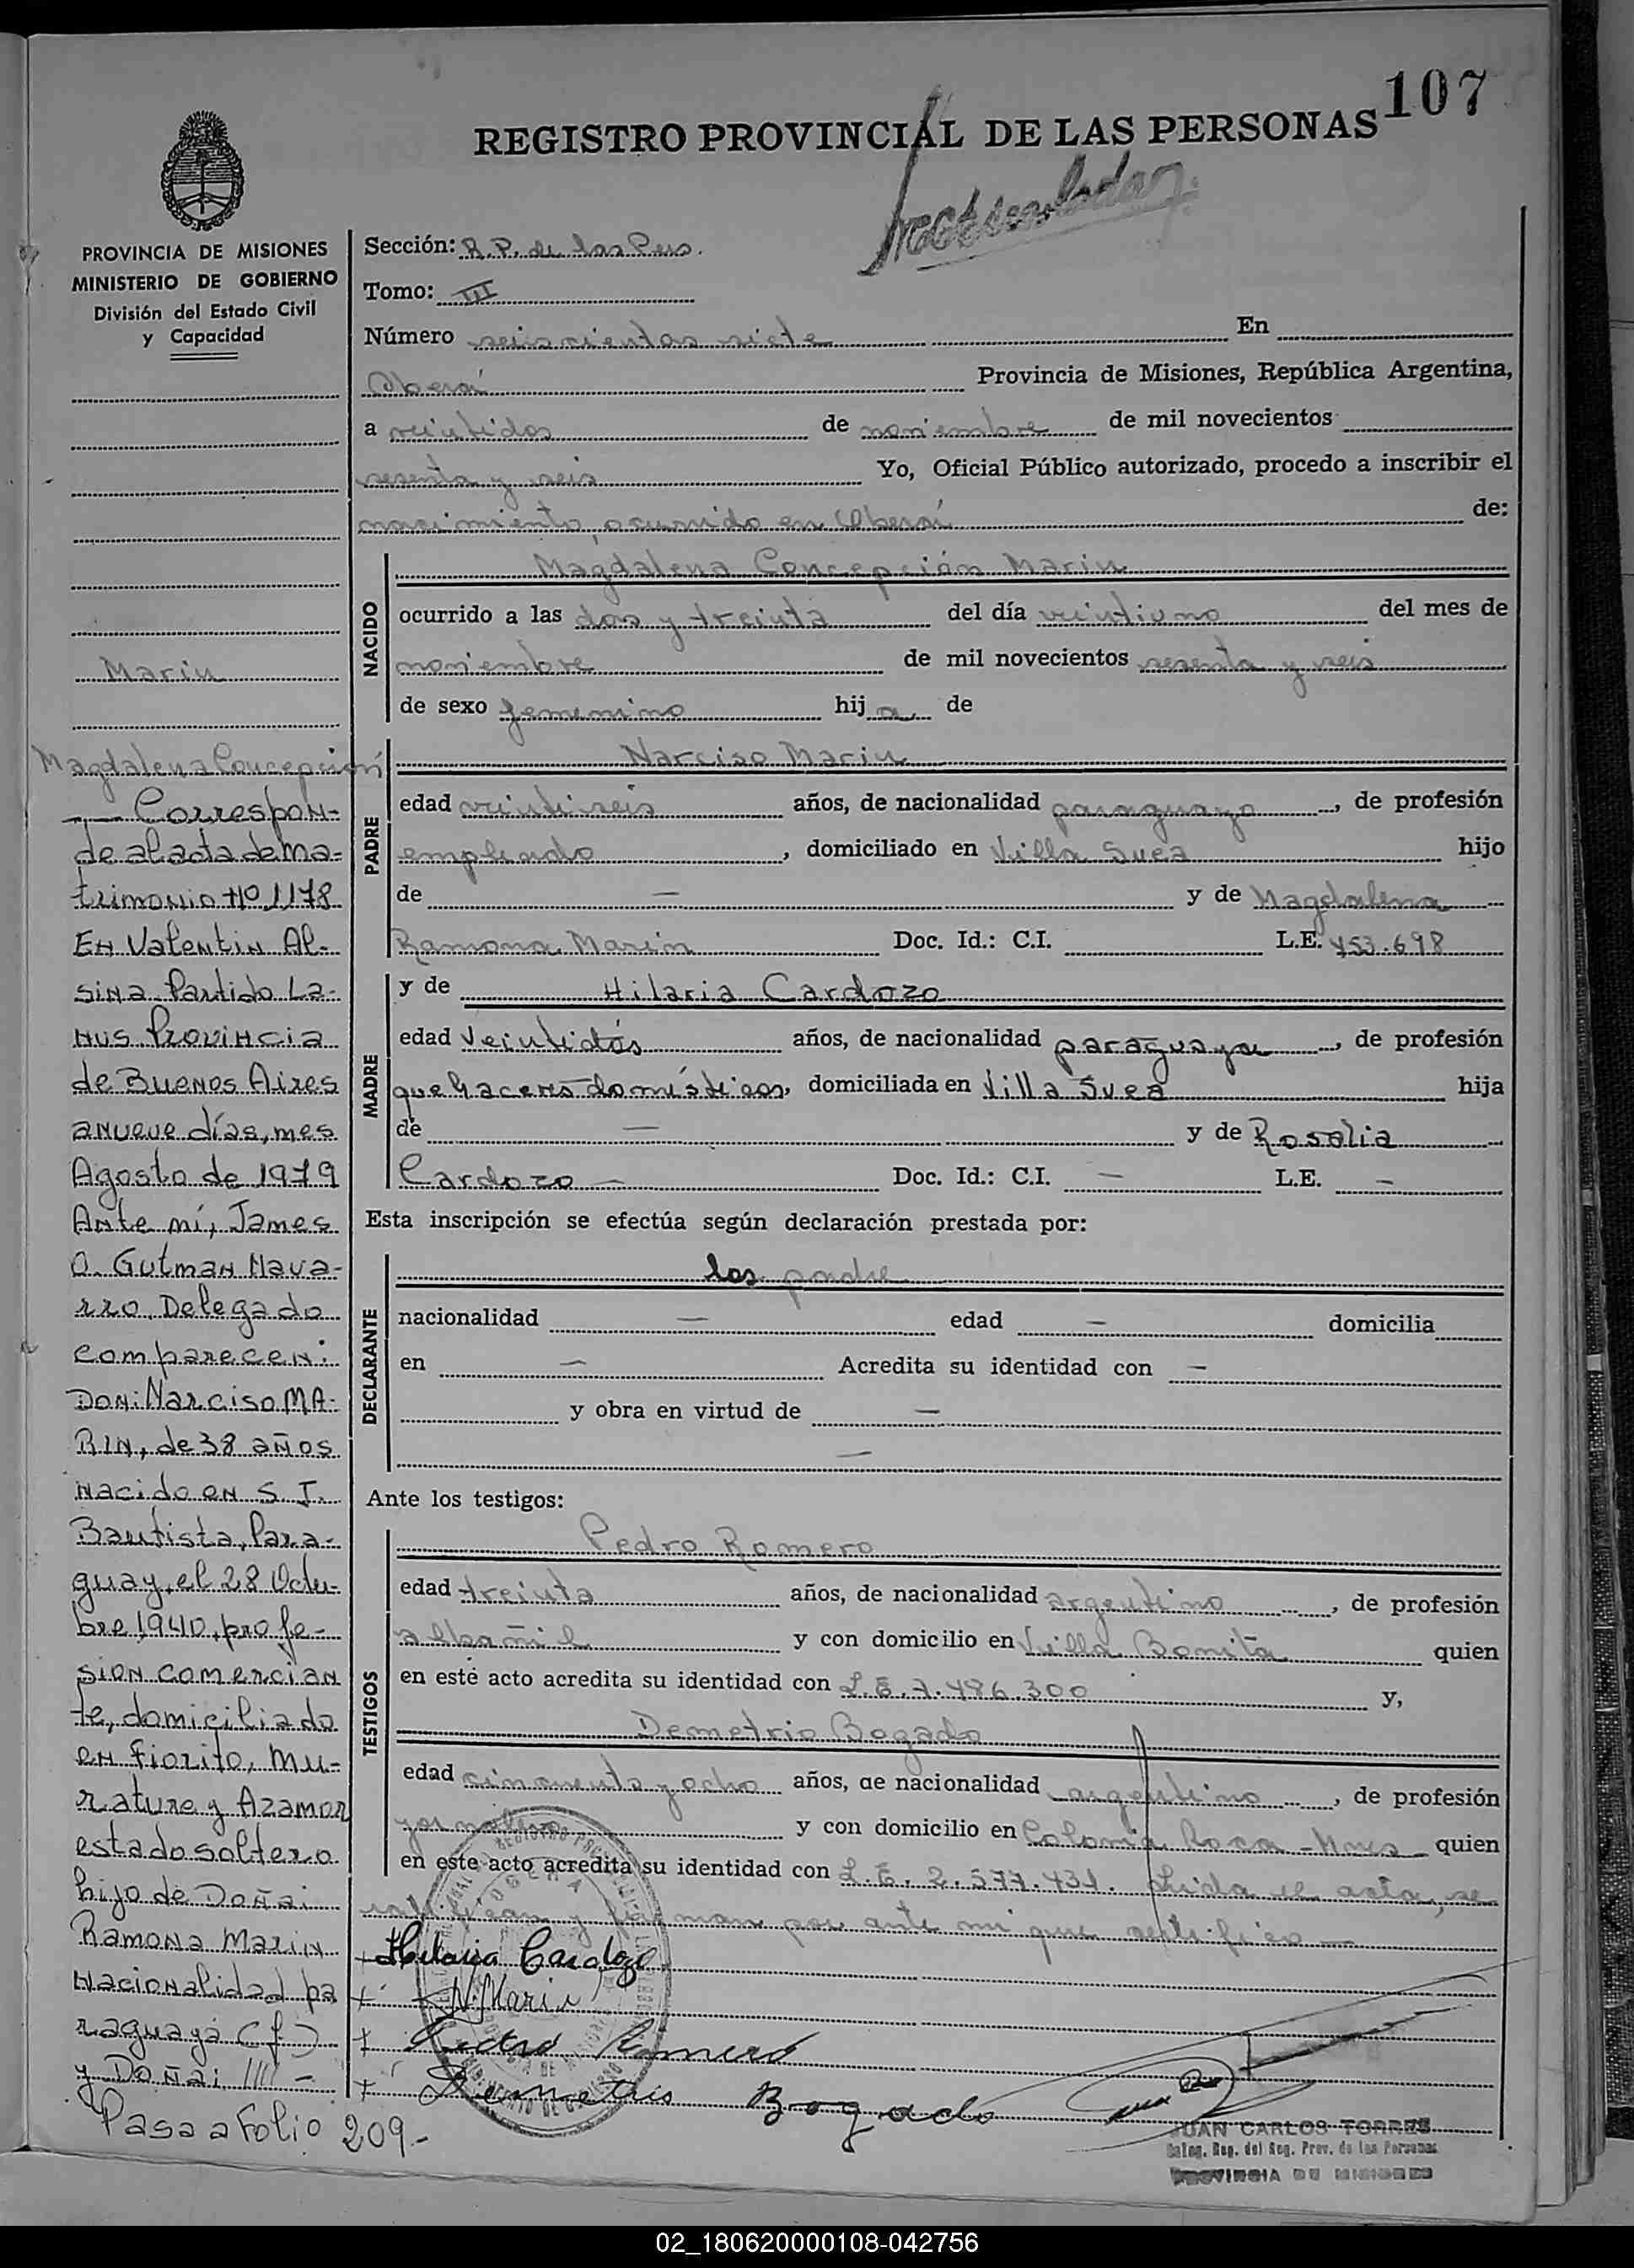 107
REGISTRO PROVINCIAL DE LAS PERSONAS
PROVINCIA DE MISIONES
MINISTERIO DE GOBIERNO
División del Estado Civil
y Capacidad
Marin
Magdalena Concepción
Correspon-
de al acta de ma-
trimonio Nº 1178
En Valentin Al-
sina Partido La-
nus Provincia
de Buenos Aires
a nueve días, mes
Agosto de 1979
Ante mí, James
O. Gutman Nava-
rro, Delegado
comparecen:
Don: Narciso MA-
RIN, de 38 años
Nacido en S. J.
Bautista, Para-
guay, el 28 Octu-
bre 1940, profe-
sion comercian
te, domiciliado
en Fiorito, Mu-
rature y Azamor
estado soltero
hijo de Doña:
Ramona Marin
Nacionalidad pa
raguaya (f)
y Doña: //// -
Pasa a Folio 209.-
Sección: R. P. de las Pers.
Tomo: III
Número seiscientos siete En
Oberá Provincia de Misiones, República Argentina,
a veintidos de noviembre de mil novecientos
sesenta y seis Yo, Oficial Público autorizado, procedo a inscribir el
nacimiento, ocurrido en Oberá de:
NACIDO
Magdalena Concepción Marin
ocurrido a las dos y treinta del día veintiuno del mes de
noviembre de mil novecientos sesenta y seis
de sexo femenino hija de
PADRE
Narciso Marin
edad veintiseis años, de nacionalidad paraguayo, de profesión
empleado, domiciliado en Villa Svea hijo
de — y de Magdalena
Ramona Marín Doc. Id.: C.I. L.E. 453.698
MADRE
y de Hilaria Cardozo
edad Veintidós años, de nacionalidad paraguaya, de profesión
quehaceres domésticos, domiciliada en Villa Svea hija
de — y de Rosalia
Cardozo — Doc. Id.: C.I. — L.E. —
Esta inscripción se efectúa según declaración prestada por:
DECLARANTE
los padre
nacionalidad — edad — domicilia
en — Acredita su identidad con —
y obra en virtud de —
—
Ante los testigos:
TESTIGOS
Pedro Romero
edad treinta años, de nacionalidad argentino, de profesión
albañil y con domicilio en Villa Bonita quien
en este acto acredita su identidad con L.E. 7.486.300 y,
Demetrio Bogado
edad cincuenta y ocho años, de nacionalidad argentino, de profesión
jornalero y con domicilio en Colonia Roca - Mnes quien
en este acto acredita su identidad con L.E. 2.577.431. Leida el acta, se
ratifican y firman por ante mi que certifico —
Hilaria Cardozo
N. Marin
Pedro Romero
Demetrio Bogado
JUAN CARLOS TORRES
Deleg. Reg. del Reg. Prov. de las Personas
PROVINCIA DE MISIONES
02_180620000108-042756